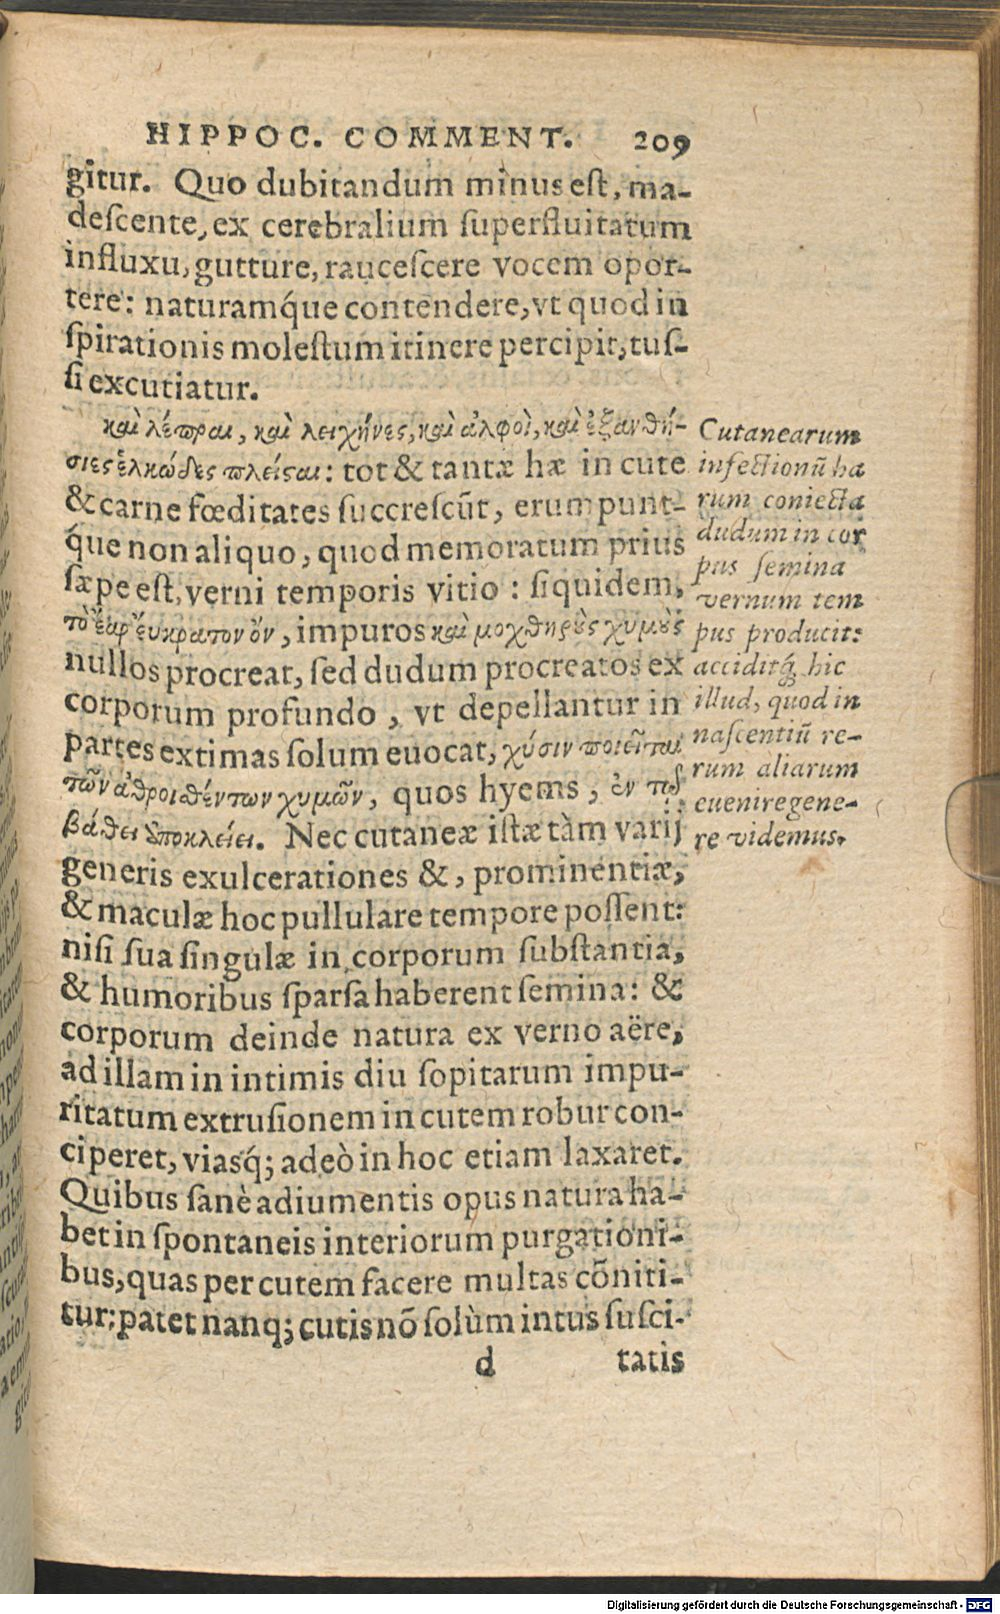 HIPPOC. COMMENT. 209
gitur. Quo dubitandum minus est, ma-
descente, ex cerebralium superfluitatum
influxu, gutture, raucescere vocem opor-
tere: naturamq́ue contendere, vt quod in
spirationis molestum itinere percipit, tus-
si excutiatur.
καὶ λέπραι, καὶ λειχῆνες, καὶ ἀλφοὶ, καὶ ἐξανθή-
σιες ἑλκώδες πλεῖςαι: tot & tantæ hæ in cute
& carne fœditates succrescũt, erumpunt-
q́ue non aliquo, quod memoratum prius
sæpe est, verni temporis vitio: siquidem,
τὸ ἔαρ εὔκρατον ὄν, impuros καὶ μοχθηροὺς χυμοὺς
nullos procreat, sed dudum procreatos ex
corporum profundo, vt depellantur in
partes extimas solum euocat, χύσιν ποιεῖται
τῶν ἀθροισθέντων χυμῶν, quos hyems, ἐν τῷ
βάθει ὑποκλείει. Nec cutaneæ istæ tàm varij
generis exulcerationes &, prominentiæ,
& maculæ hoc pullulare tempore possent:
nisi sua singulæ in corporum substantia,
& humoribus sparsa haberent semina: &
corporum deinde natura ex verno aëre,
ad illam in intimis diu sopitarum impu-
ritatum extrusionem in cutem robur con-
ciperet, viasq́; adeò in hoc etiam laxaret.
Quibus sanè adiumentis opus natura ha-
bet in spontaneis interiorum purgationi-
bus, quas per cutem facere multas cõniti-
tur: patet nanq; cutis nõ solùm intus susci-
d tatis
Cutanearum
infectionũ ha
rum coniecta
dudum in cor
pus semina
vernum tem
pus producit:
acciditq́ hic
illud, quod in
nascentiũ re-
rum aliarum
euenire gene-
re videmus.
Digitalisierung gefördert durch die Deutsche Forschungsgemeinschaft - DFG